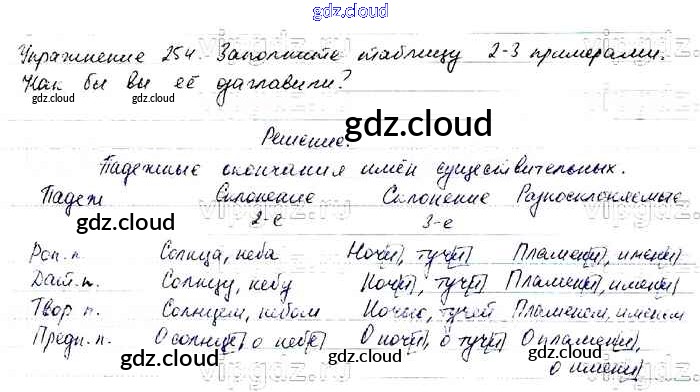 gdz.cloud
Упражнение 254. Заполните таблицу 2-3 примерами.
Как бы вы её озаглавили?
gdz.cloud gdz.cloud gdz.cloud
gdz.cloud
Решение.
Падежные окончания имён существительных.
Падеж Склонение Склонение Разносклоняемые
gdz.cloud 2-е 3-е gdz.cloud
Род. п. Солнца, неба Ночи, тучи Пламени, имени
Дат. п. Солнцу, небу Ночи, тучи Пламени, имени
Твор п. Солнцем, небом Ночью, тучей Пламенем, именем
Предн. п. О солнце, о небе О ночи, о тучи О пламени,
gdz.cloud gdz.cloud о имени